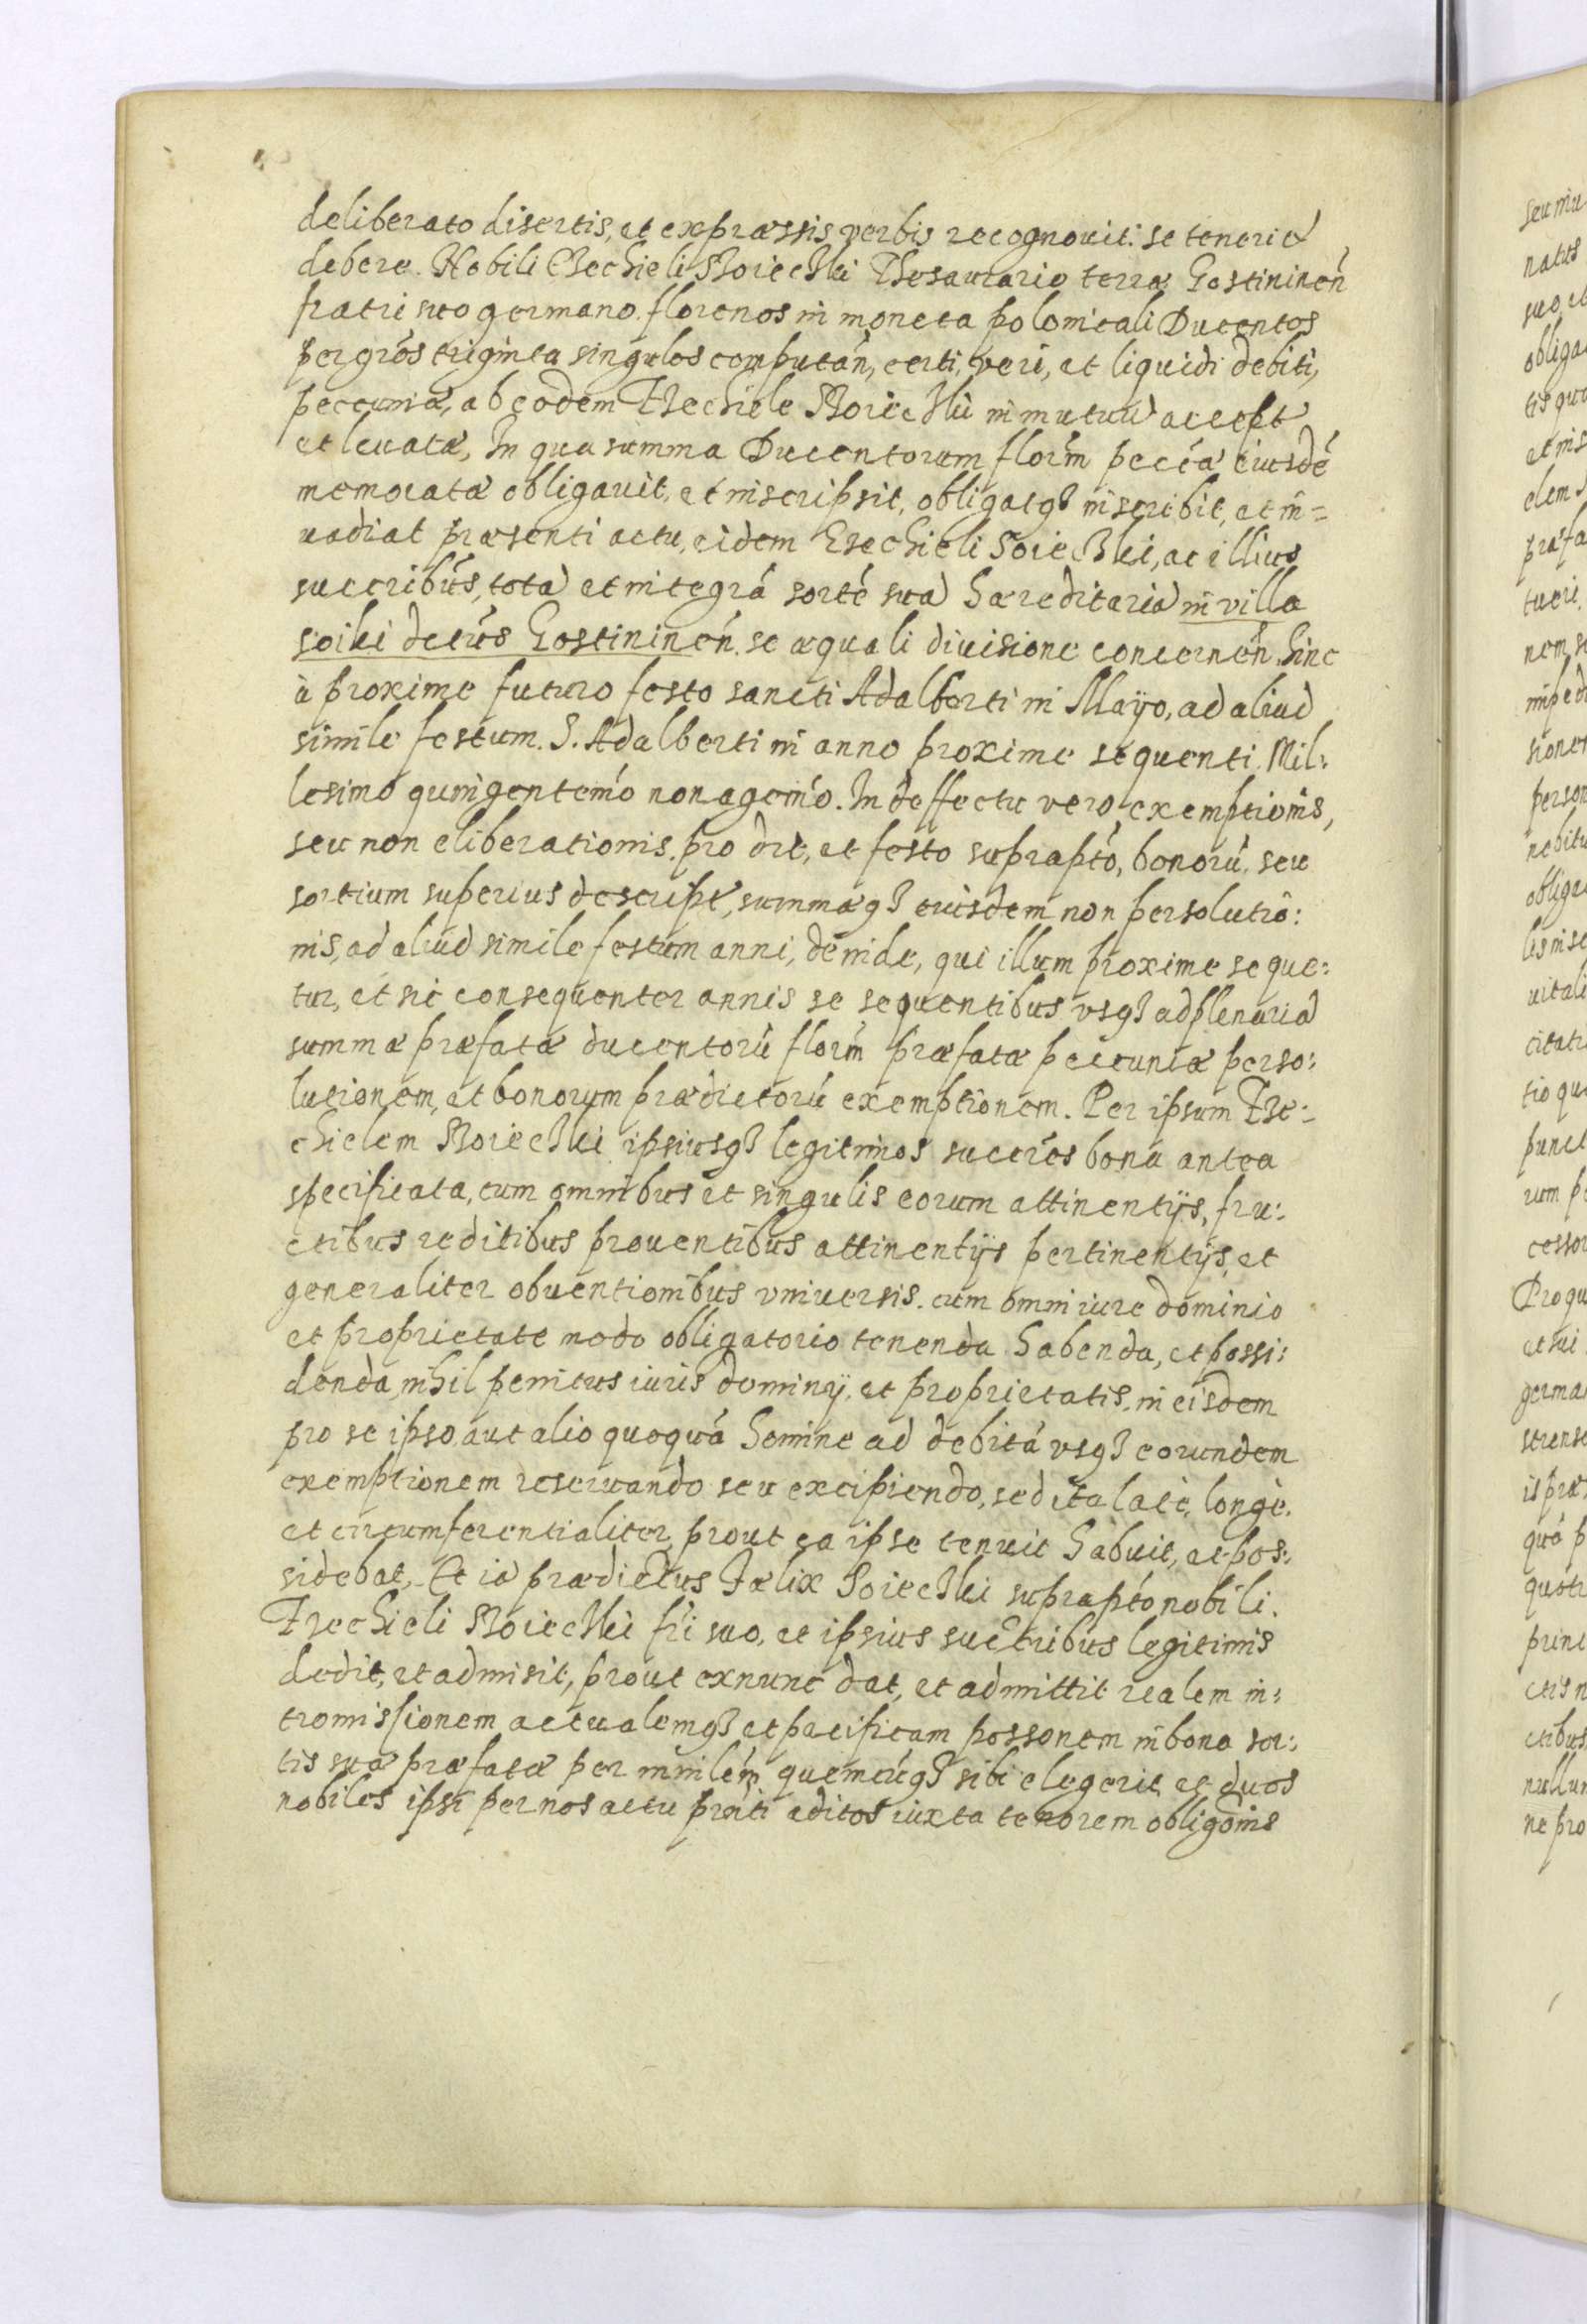 deliberato disertis, et expræssis verbis recognouit: se teneri et
debere. Nobili Ezechieli Szoieczki Thesaurario terræ Gostininen̄
fratri suo germano. florenos in moneta polonicali Ducentos
per grōs triginta singulos computan̄, certi, veri, et liquidi debiti,
peccuniæ, ab eodem Ezechiele Szoieczki in mutuū accept
et leuatæ, In qua summa Ducentorum florm̄ peccæ eiusdē
memoratæ obligauit, et inscripsit, obligatqȝ inscribit, et in=
uadiat præsenti actu, eidem Ezechieli Soieczki, ac illius
succribūs, totā et integrā sortē suā hæreditariā in villa
soiki dctūs Gostininen̄. se æquali diuisione concernen̄. hinc
à proxime futuro festo sancti Adalberti in Mayo, ad aliud
simile festum. S. Adalberti in anno proxime sequenti. Mil:
lesimo quingentem̄o nonagem̄o. In deffectu vero, exemptionis,
seu non eliberationis. pro dicto, et festo suprapto, bonorū. seu
sortium superius descript, summæqȝ eiusdem non persolutio:
nis, ad aliud simile festum anni, deinde, qui illum proxime seque:
tur, et sic consequenter annis se sequentibus vsqȝ ad plenariā
summæ præfatæ ducentorū florm̄ præfatæ peccuniæ perso:
lutionem, et bonorum prædictorū exemptionem. Per ipsum Eze:
chielem Szoieczki ipsiusqȝ legitimos succrēs bona antea
specificata, cum omnibus et singulis eorum attinentijs, fru:
ctibus reditibus prouentibus attinentijs pertinentijs, et
generaliter obuentionibus vniuersis. cum omni iure dominio
et proprietate modo obligatorio tenenda habenda, et possi:
denda, nihil penitus iuris dominij, et proprietatis. in eisdem
pro se ipso, aut alio quoquā homine ad debitā vsqȝ eorundem
exemptionem reseruando seu excipiendo, sed ita latè, longè.
et circumferentialiter, prout ea ipse tenuit habuit, et pos:
sidebat, Et iā prædictus Fælix Soieczki suprapto nobili.
Ezechieli Szoieczki fri suo, et ipsius succribus legitimis
dedit, et admisit, prout exnunc dat, et admittit realem in:
tromissionem actualemqȝ et pacificam possonem in bona sor:
tis suæ præfatæ per minlēm quemcūqȝ sibi elegerit et duos
nobiles ipsi per nos actu prnti aditos iuxta tenorem obligonis